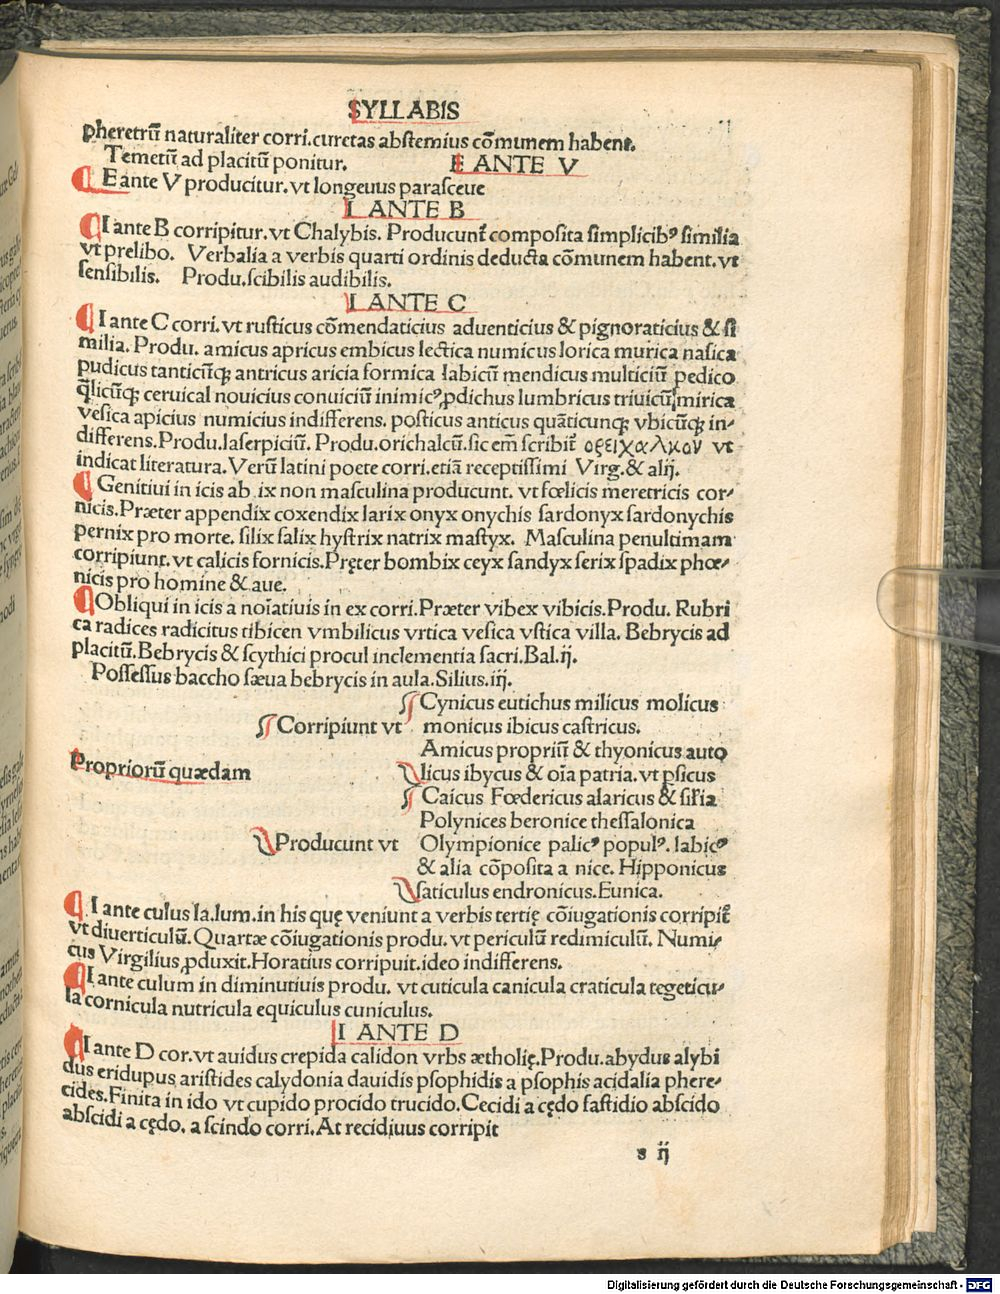 SYLLABIS
pheretrũ naturaliter corri.curetas abstemius cõmunem habent.
Temetũ ad placitũ ponitur. E ANTE V
E ante V producitur.vt longeuus parasceue
I ANTE B
I ante B corripitur.vt Chalybis. Producunt̃ composita simplicibꝰ similia
vt prelibo. Verbalia a verbis quarti ordinis deducta cõmunem habent.vt
sensibilis. Produ.scibilis audibilis.
I ANTE C
I ante C corri.vt rusticus cõmendaticius aduenticius & pignoraticius & si
milia.Produ. amicus apricus embicus lectica numicus lorica murica nasica
pudicus tanticũqꝫ antricus aricia formica labicũ mendicus multiciũ pedico
q̃licũqꝫ ceruical nouicius conuiciũ inimicꝰ,ꝓdichus lumbricus triuicũ mirica
vesica apicius numicius indifferens. posticus anticus quãticunqꝫ vbicũqꝫ in-
differens.Produ.laserpiciũ. Produ.orichalcũ.sic em̃ scribit̃ ορειχαλκον vt
indicat literatura.Verũ latini poete corri.etiã receptissimi Virg.& alij.
Genitiui in icis ab ix non masculina producunt. vt fœlicis meretricis cor-
nicis.Præter appendix coxendix larix onyx onychis sardonyx sardonychis
pernix pro morte. silix salix hystrix natrix mastyx. Masculina penultimam
corripiunt.vt calicis fornicis.Pręter bombix ceyx sandyx serix spadix phœ-
nicis pro homine & aue.
Obliqui in icis a noĩatiuis in ex corri.Præter vibex vibicis.Produ. Rubri
ca radices radicitus tibicen vmbilicus vrtica vesica vstica villa. Bebrycis ad
placitũ.Bebrycis & scythici procul inclementia sacri.Bal.ij.
Possessus baccho sæua bebrycis in aula.Silius.iij.
Cynicus eutichus milicus molicus
Corripiunt vt monicus ibicus castricus.
Amicus propriũ & thyonicus auto
Propriorũ quædam licus ibycus & oĩa patria.vt ꝑsicus
Caicus Fœdericus alaricus & sil̃ia
Polynices beronice thessalonica
Producunt vt Olympionice palicꝰ populꝰ. labicꝰ
& alia cõposita a nice. Hipponicus
saticulus endronicus.Eunica.
I ante culus la.lum.in his quę veniunt a verbis tertię cõiugationis corripit̃
vt diuerticulũ.Quartæ cõiugationis produ.vt periculũ redimiculũ. Numi-
cus Virgilius ꝓduxit.Horatius corripuit.ideo indifferens.
I ante culum in diminutiuis produ. vt cuticula canicula craticula tegeticu-
la cornicula nutricula equiculus cuniculus.
I ANTE D
I ante D cor.vt auidus crepida calidon vrbs ætholię.Produ.abydus alybi
dus eridupus aristides calydonia dauidis psophidis a psophis acidalia phere-
cides.Finita in ido vt cupido procido trucido.Cecidi a cędo fastidio abscido
abscidi a cędo. a scindo corri.At recidiuus corripit
s ij
Digitalisierung gefördert durch die Deutsche Forschungsgemeinschaft - DFG